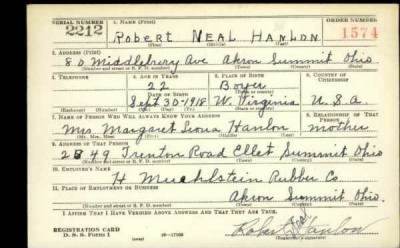 SERIAL NUMBER 1. NAME (Print) ORDER NUMBER
2212 ROBERT NEAL HANLON 1574
(First) (Middle) (Last)
2. ADDRESS (Print)
80 Middlebury Ave Akron Summit Ohio
(Number and street or R. F. D. number) (Town) (County) (State)
3. TELEPHONE 4. AGE IN YEARS 5. PLACE OF BIRTH 6. COUNTRY OF CITIZENSHIP
22 Boyer
DATE OF BIRTH (Town or county)
Sept 30-1918 W. Virginia U.S.A.
(Exchange) (Number) (Mo.) (Day) (Yr.) (State or country)
7. NAME OF PERSON WHO WILL ALWAYS KNOW YOUR ADDRESS 8. RELATIONSHIP OF THAT PERSON
Mrs. Margaret Hanlon mother
(Mr., Mrs., Miss) (First) (Middle) (Last)
9. ADDRESS OF THAT PERSON
2849 Trenton Road Ellet Summit Ohio
(Number and street or R. F. D. number) (Town) (County) (State)
10. EMPLOYER'S NAME
H Muehlstein Rubber Co
11. PLACE OF EMPLOYMENT OR BUSINESS
Akron Summit Ohio.
(Number and street or R. F. D. number) (Town) (County) (State)
I AFFIRM THAT I HAVE VERIFIED ABOVE ANSWERS AND THAT THEY ARE TRUE.
REGISTRATION CARD
D. S. S. Form 1 Robert Hanlon
(Registrant's signature)